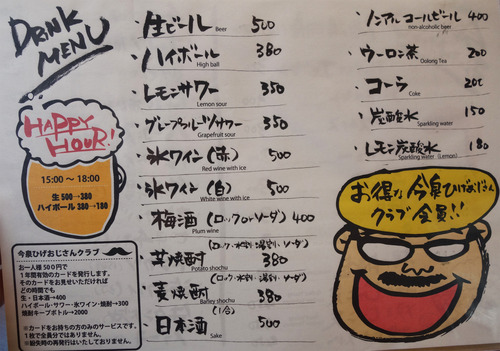 DRINK MENU
・生ビール 500
Beer
・ハイボール 380
High ball
・レモンサワー 350
Lemon sour
・グレープフルーツサワー 350
Grapefruit sour
・氷ワイン(赤) 500
Red wine with ice
・氷ワイン(白) 500
White wine with ice
・梅酒 (ロックorソーダ) 400
Plum wine
(ロック・水割・湯割・ソーダ)
・芋焼酎 380
Potato shochu
(ロック・水割・湯割・ソーダ)
・麦焼酎 380
Barley shochu
(1合)
・日本酒 500
Sake
・ノンアルコールビール 400
non-alcoholic beer
・ウーロン茶 200
Oolong Tea
・コーラ 200
Coke
・炭酸水 150
Sparkling water
・レモン炭酸水 180
Sparkling water (Lemon)
HAPPY HOUR!
15:00～18:00
生 500→380
ハイボール 380→180
今泉ひげおじさんクラブ
お一人様500円で
1年間有効のカードを発行します。
そのカードをお見せいただければ
どの時間でも
生・日本酒→400
ハイボール・サワー・氷ワイン・焼酎→300
焼酎キープボトル→2000
※カードをお持ちの方のみのサービスです。
1枚で全員分ではありません。
※紛失時の再発行はいたしておりません。
お得な 今泉ひげおじさん
クラブ会員!!